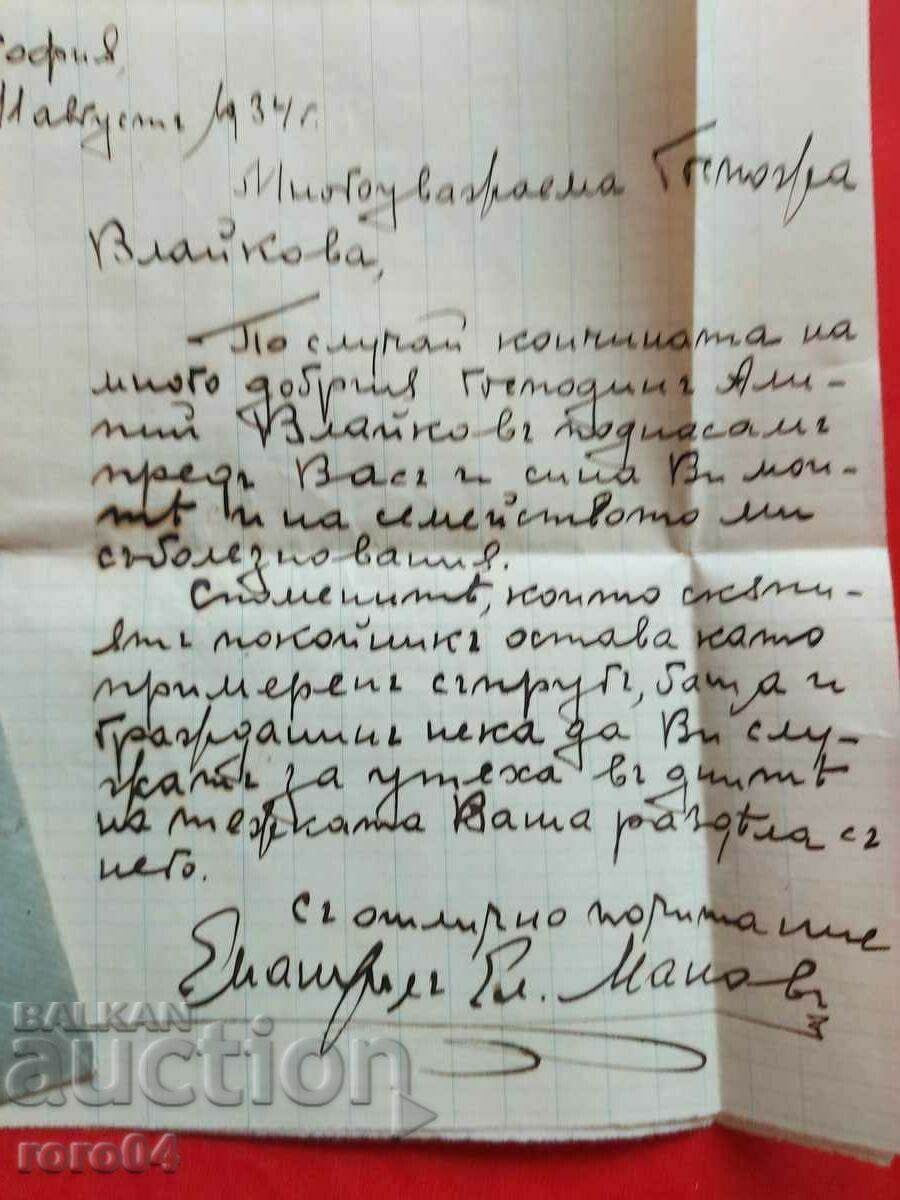 София,
11 августъ 1934 г.
Многоуважаема Госпожа
Влайкова,
По случай кончината на
много добрия Господинъ Али-
пий Влайковъ поднасамъ
предъ Васъ и сина Ви мои-
тѣ и на семейството ми
съболезнования.
Споменитѣ, които скѫпи-
ятъ покойникъ остава като
примеренъ съпругъ, баща и
гражданинъ нека да Ви слу-
жатъ за утеха въ днитѣ
на тежката Ваша раздѣла съ
него.
Съ отлично почитание
Гл. Мановъ
BALKAN
auction
roro04